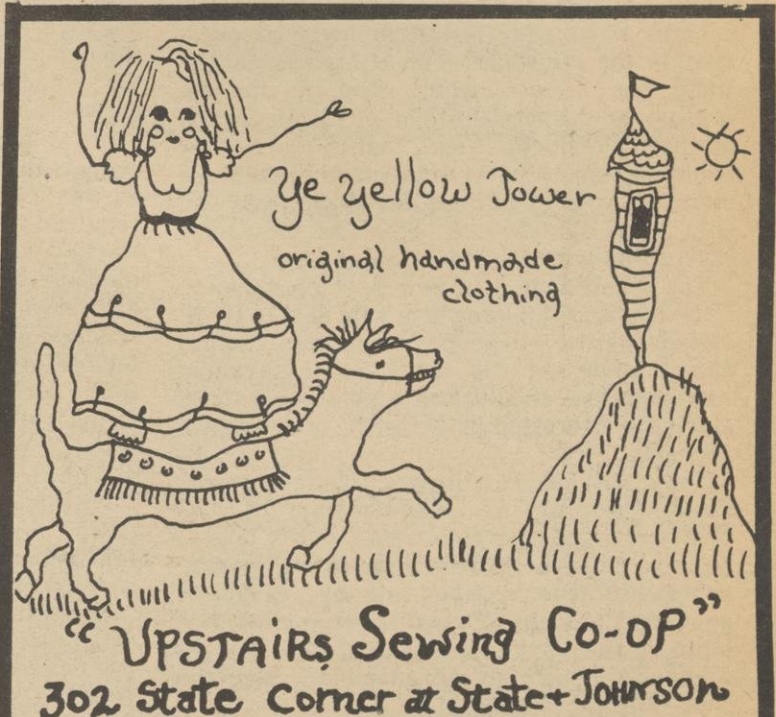 Ye Yellow Tower
original handmade
clothing
"UPSTAIRS Sewing CO-OP"
302 State Corner at State + JOHNSON